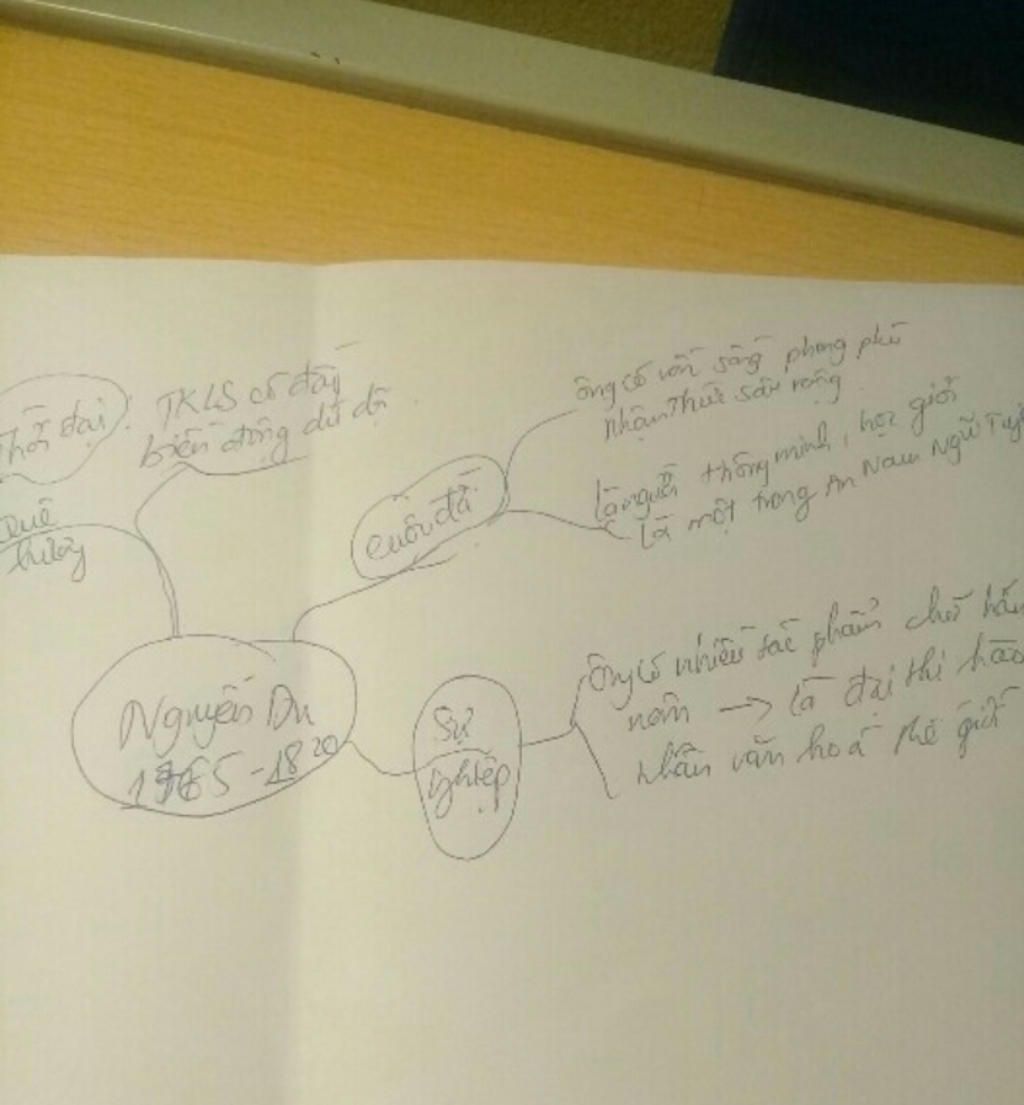 Thời đại:
TKLS có đầy
biến động dữ dội
Quê
hương
cuộc đời
ông có vốn sống phong phú
nhận thức sâu rộng
Là người thông minh, học giỏi
Là một trong An Nam Ngũ Tuyệ
Nguyễn Du
1765-1820
Sự
nghiệp
Ông có nhiều tác phẩm chữ hán
nôm → là đại thi hào
nhân văn hoá thế giới